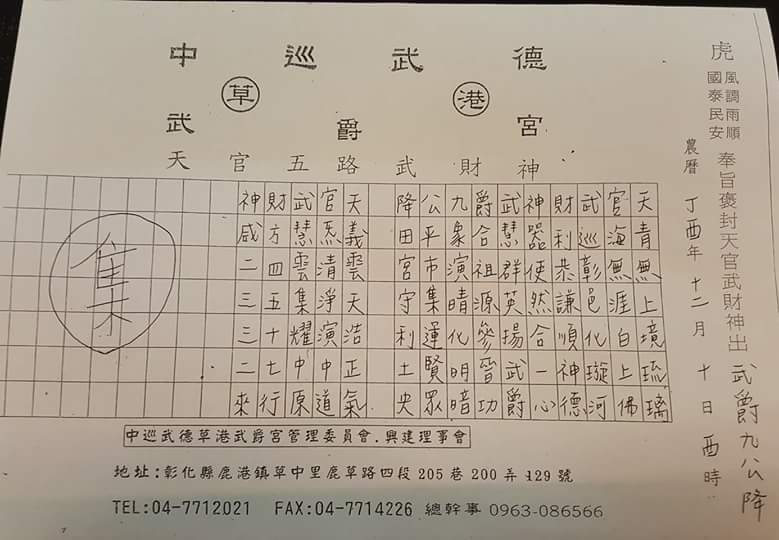 中巡武德
草 港
武爵宮
天官五路武財神
虎
風調雨順
國泰民安
奉旨褒封天官武財神出 武爵九公降
農曆 丁酉年 十二月 十日 酉時
天青無上境琉璃
官海無涯白上佛
武巡彰邑化璇河
財利恭謙順神德
神器使然合一心
武慧群英揚武爵
爵合祖源參晉功
九象演晴化明暗
公平市集運賢眾
降田宮守利土央
天義雲天浩正氣
官炁清淨演中道
武慧雲集耀中原
財方四五十七行
神咸二三三二來
集
中巡武德草港武爵宮管理委員會.興建理事會
地址:彰化縣鹿港鎮草中里鹿草路四段205巷200弄129號
TEL:04-7712021 FAX:04-7714226 總幹事 0963-086566